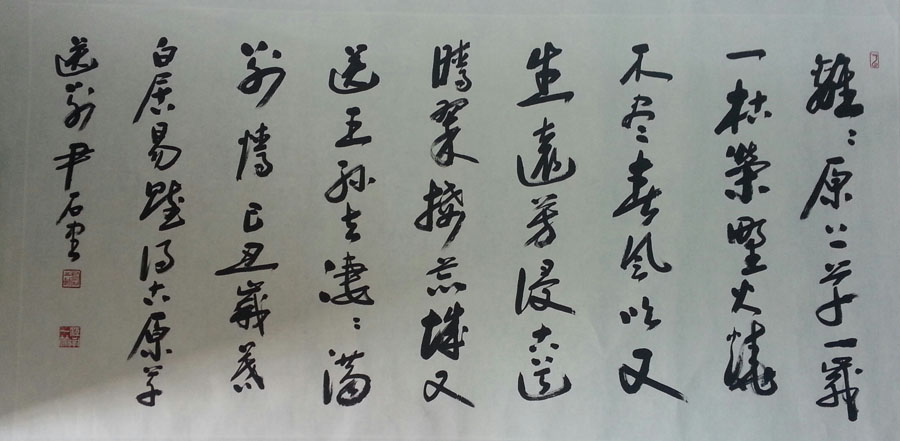 離〻原上草一歲
一枯榮野火燒
不尽春風吹又
生遠芳侵古道
晴翠接荒城又
送王孫去凄〻滿
別情己丑歲
白居易賦得古原草
送別尹石